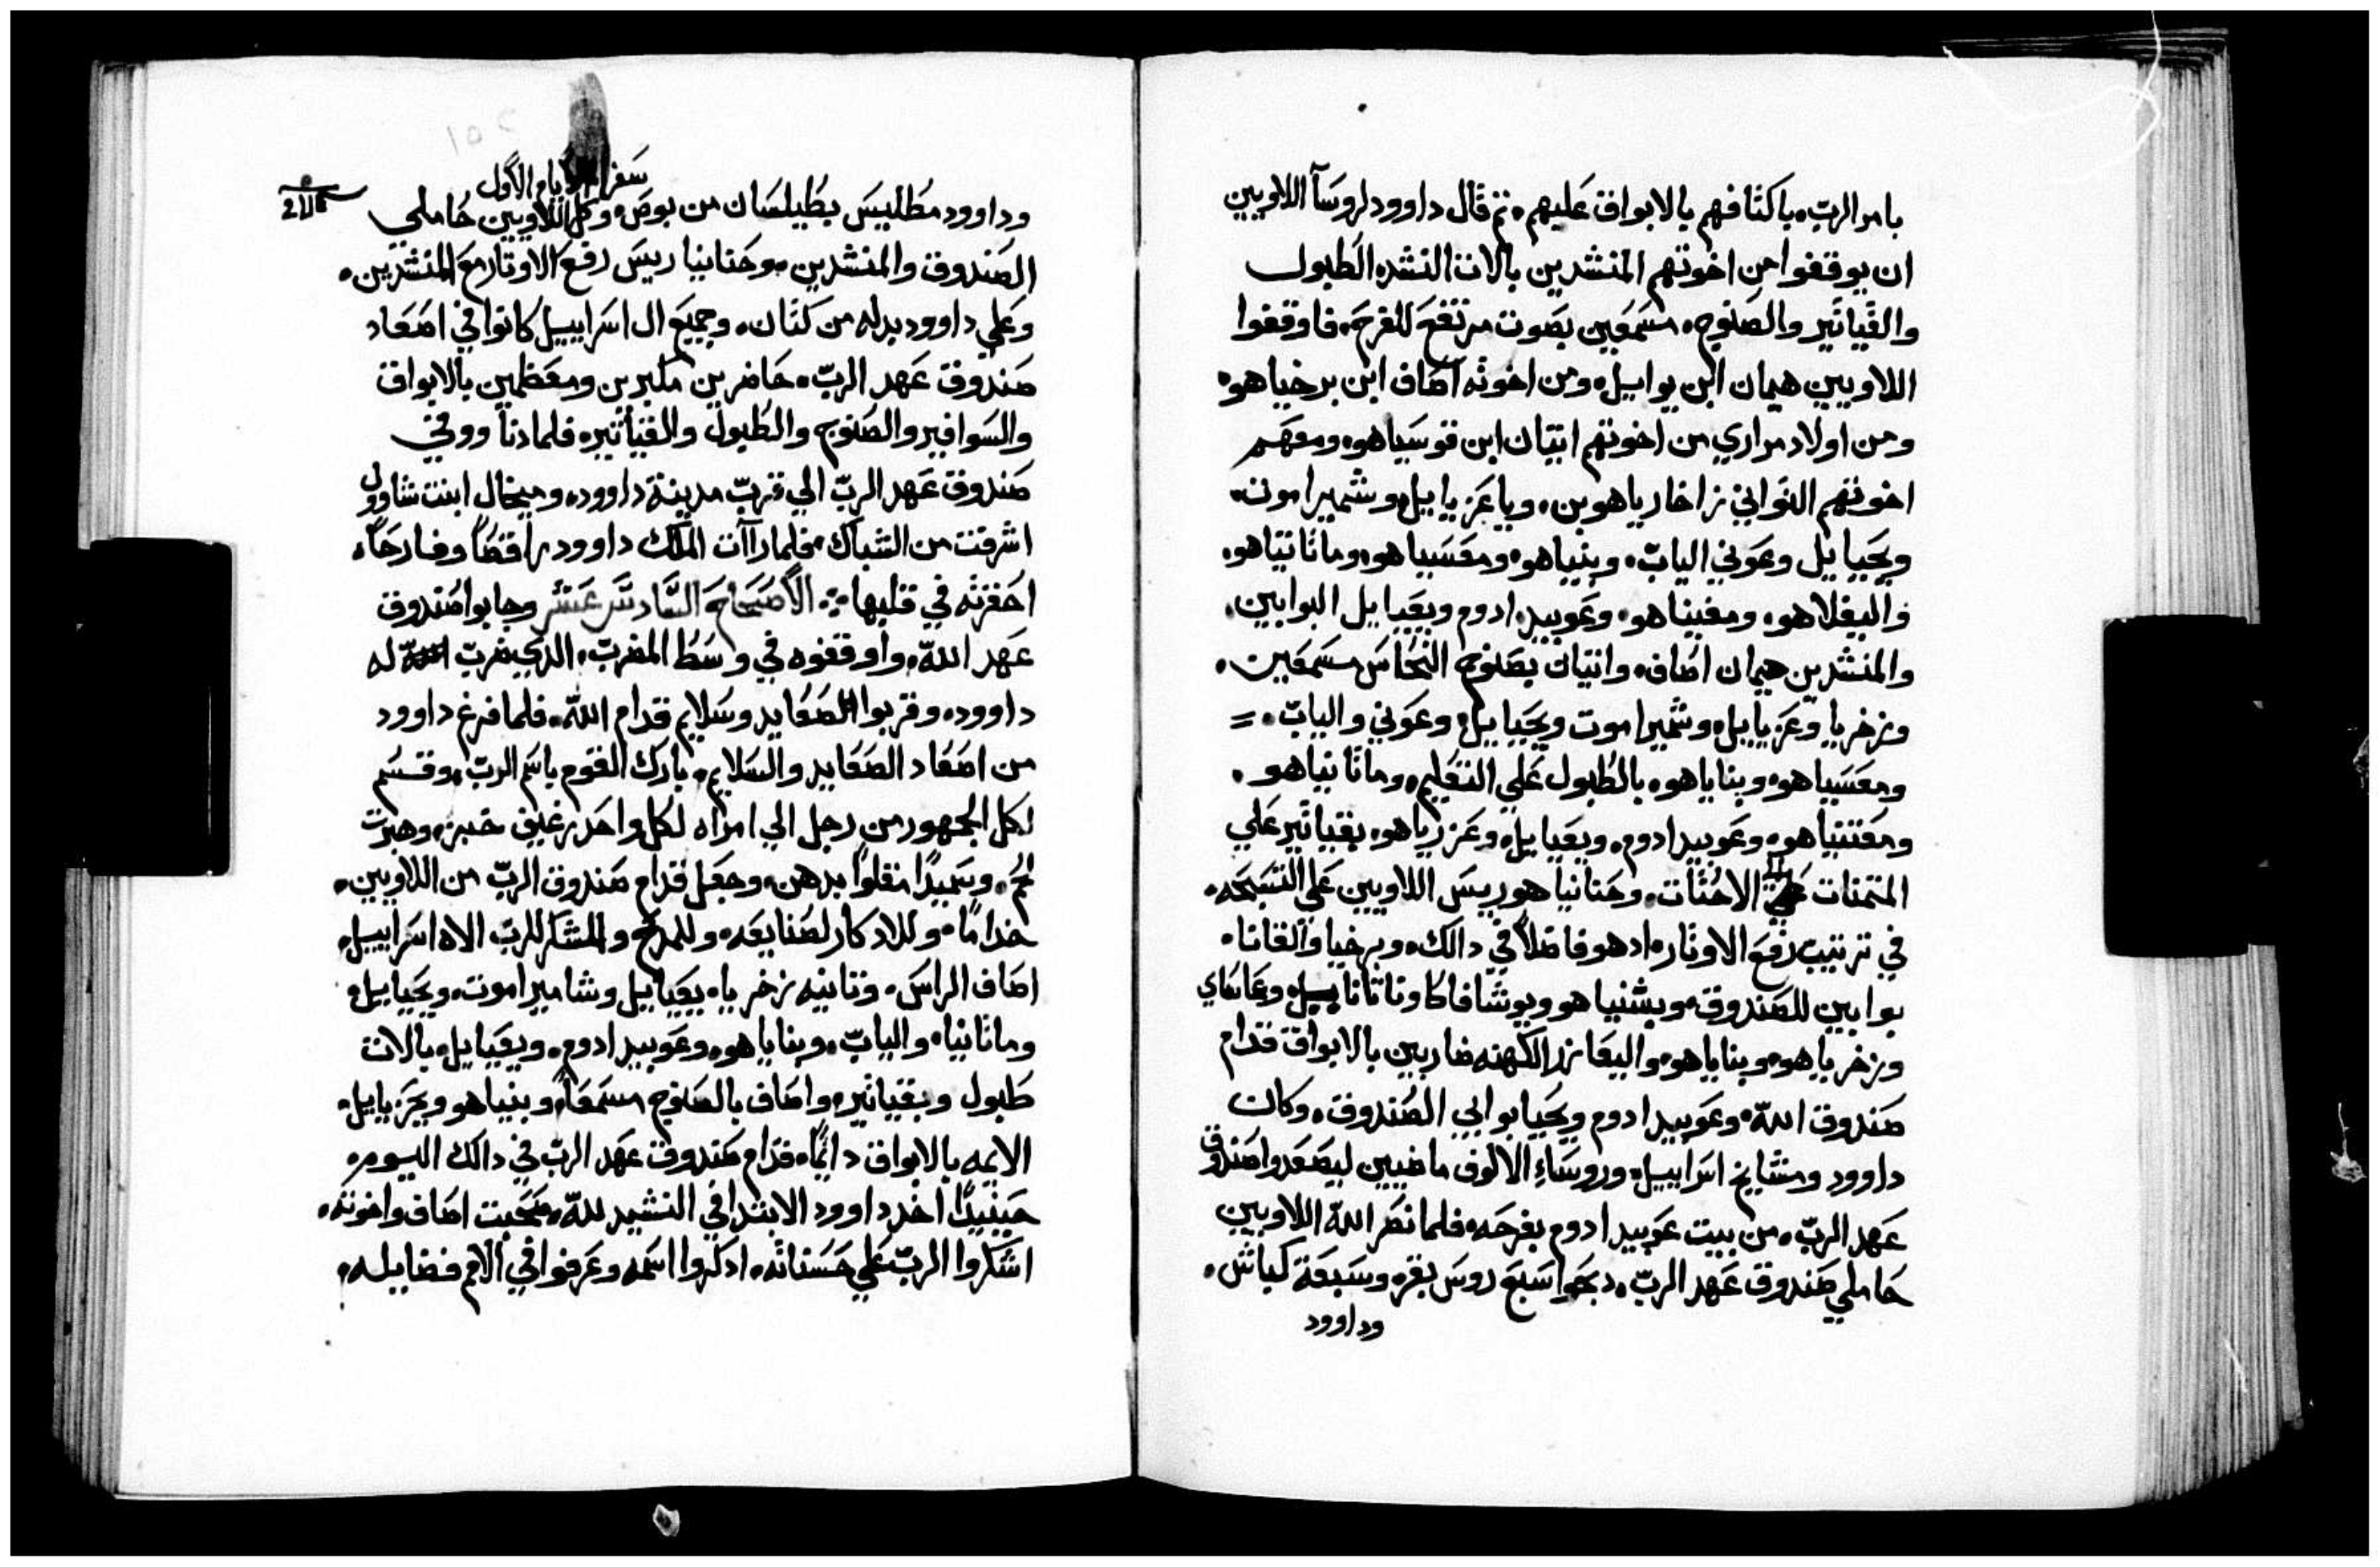 بامر الربّ، باكتافهم بالابواق عليهم، ثم قال داوود لروسآ اللاويين
ان يوقفوا من اخوتهم المنشدين بالات النشده الطبول
والقياتير والصنوج، مسمعين بصوت مرتفع للفرح، فاوقفوا
اللاويين هيمان ابن يواييل، ومن اخوته اصاف ابن برخياهو،
ومن اولاد مراري من اخوتهم ايتان ابن قوسياهو، ومعهم
اخوتهم التواني زاخارياهو بن، وياعزياييل، وشميراموت،
ويحياييل وعوني الياب، وبنياهو، ومعسياهو، وماتاتياهو،
واليفلاهو، ومقيناهو، وعوبيد ادوم ويعياييل البوابين،
والمنشدين هيمان اصاف، وايتان بصنوج النحاس مسمعين،
وزخريا وعزياييل، وشميراموت ويحياييل، وعوني والياب، =
ومعسياهو، وبناياهو، بالطبول علي التعليم، وماتاتياهو،
ومقنياهو، وعوبيد ادوم، ويعياييل، وعززياهو، بقياتير علي
المتمنات الاحتات، وحنانياهو ريس اللاويين علي التسبحه،
في ترتيب رفع الاوتار، ادهو فاضلاً في دالك، وبرخيا والقانا،
بوابين للصندوق، وبشنياهو ويوشافاط وناتانا ييل، وعاماي
وزخرياهو، وبناياهو، واليعازر الكهنه ضاربين بالابواق قدام
صندوق اللّه، وعوبيد ادوم ويحيا بوابي الصندوق، وكان
داوود ومشايخ اسراييل، وروساءِ الالوف ماضيين ليصعدوا صندوق
عهد الربّ، من بيت عوبيد ادوم بفرحه، فلما نصر اللّه اللاويين
حاملي صندوق عهد الربّ، دبحوا سبع روس بقر، وسبعة كباش،
وداوود
سفر الايام الاول
وداوود مطليس بطيلسان من بوص، وكل اللاويين حاملي
الصندوق والمنشدين، وحنانيا ريس رفع الاوتار مع المنشدين،
وعلي داوود بدله من كتان، وجميع ال اسراييل كانوا في اصعاد
صندوق عهد الربّ، حاضرين مكبرين ومعظمين بالابواق
والسوافير والصنوج والطبول والقياتير، فلما دنا ووقي
صندوق عهد الربّ الي قرب مدينة داوود، وميخال ابنت شاوول
اشرفت من الشباك، فلما راآت الملك داوود راقصاً وفارحاً،
احقرته في قلبها ؞ الاصحاح السادس عشر وجابوا صندوق
عهد اللّه، واوقفوه في واسط المضرب، الدي ضرب له
داوود، وقربوا الصعايد وسلايم قدام اللّه، فلما فرغ داوود
من اصعاد الصعايد والسلايم، بارك القوم باسم الربّ، وقسم
لكل الجمهور من رجل الي امراه لكل واحد رغيف خبز، وهبرت
لحم، وسميداً مقلواً بدهن، وجعل قدام صندوق الربّ من اللاويين،
خداماً، وللادكار لصنايعه، وللمدح والشكر للرب الاه اسراييل،
اصاف الراس، وتانيه زخريا، يعياييل وشاميراموت، ويحياييل،
وماتانيا، والياب، وبناياهو، وعوبيد ادوم، ويعياييل، بالات
طبول وبقياتير، واصاف بالصنوج مسمعاً، وبنياهو ويحزياييل،
الايمه بالابواق دايماً، قدام صندوق عهد الربّ في دالك اليوم،
حينيداً اخد داوود الابتدا في النشيد للّه، صحبت اصاف واخوته،
اشكروا الربّ علي حسناته، ادكروا اسمه وعرفوا في الامم فضايله،